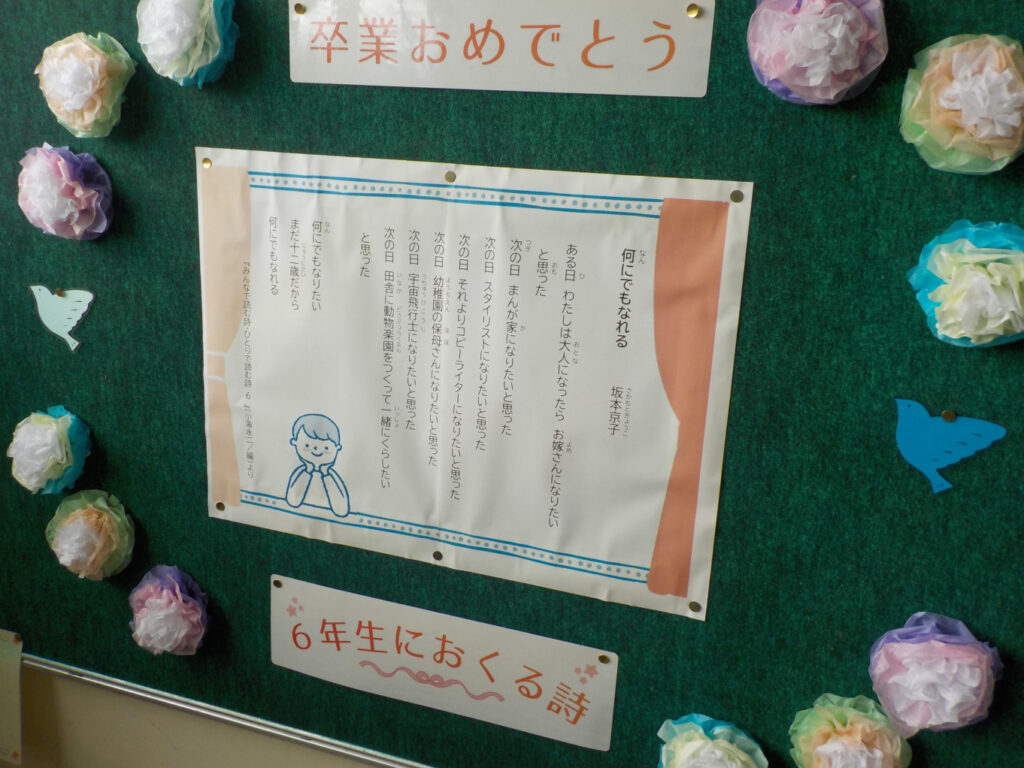 卒業おめでとう
何にでもなれる
坂本京子
ある日 わたしは大人になったら お嫁さんになりたい
と思った
次の日 まんが家になりたいと思った
次の日 スタイリストになりたいと思った
次の日 それよりコピーライターになりたいと思った
次の日 幼稚園の保母さんになりたいと思った
次の日 宇宙飛行士になりたいと思った
次の日 田舎に動物楽園をつくって一緒にくらしたい
と思った
何にでもなりたい
まだ十二歳だから
何にでもなれる
『みんなで読む詩・ひとりで読む詩 6』(小海永二/編)より
6年生におくる詩